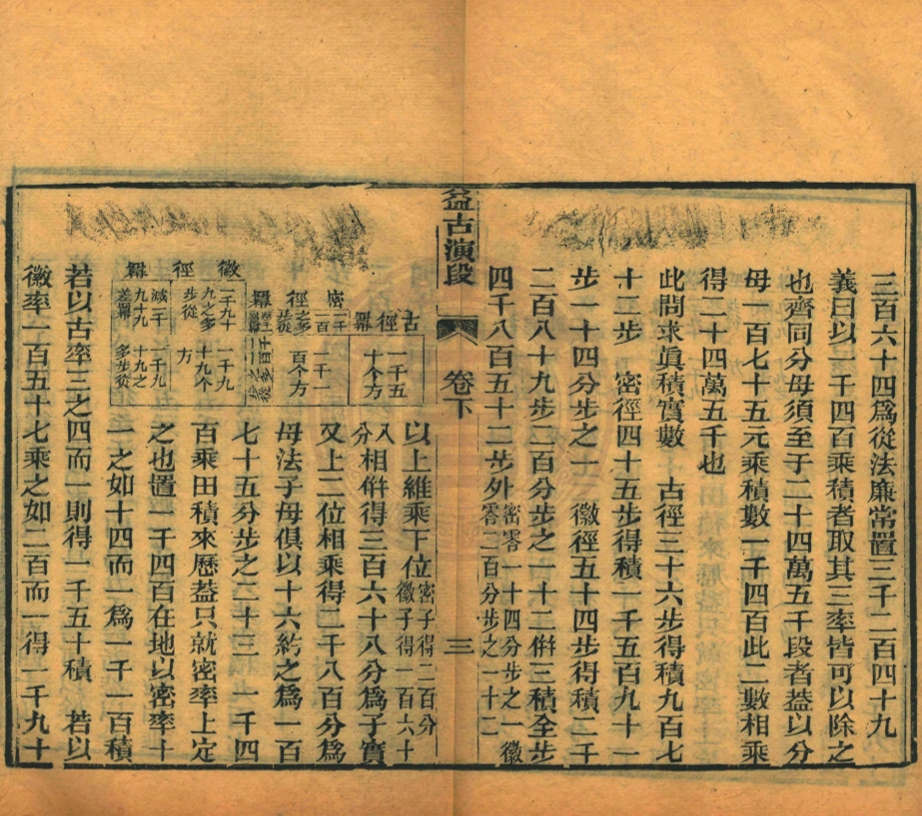 三百六十四爲從法廉常置三千二百四十九
義曰以一千四百乘積者取其三率皆可以除之
也齊同分母須至于二十四萬五千段者葢以分
母一百七十五元乘積數一千四百此二數相乘
得二十四萬五千也
此問求眞積實數　古徑三十六步得積九百七
十二步　密徑四十五步得積一千五百九十一
步一十四分步之一　徽徑五十四步得積二千
二百八十九步二百分步之一十二倂三積全步
四千八百五十二步外零二百分步之一十二密零一十四分步之一徽
益古演段　卷下　三
以上維乘下位密子得二百分徽子得一百六十
八分相倂得三百六十八分爲子實
又上二位相乘得二千八百分爲
母法子母俱以十六約之爲一百
七十五分步之二十三　一千四
百乘田積來歷葢只就密率上定
之也置一千四百在地以密率十
一之如十四而一爲一千一百積
若以古率三之四而一則得一千五十積　若以
徽率一百五十七乘之如二百而一得一千九十
古徑冪
一千五
十个方
密徑冪
一千一
百个方
徽徑冪
二千九十
九之多
步從
一千九
十九个
方
減二千
九十九
差冪
一千九
十九之
多步從